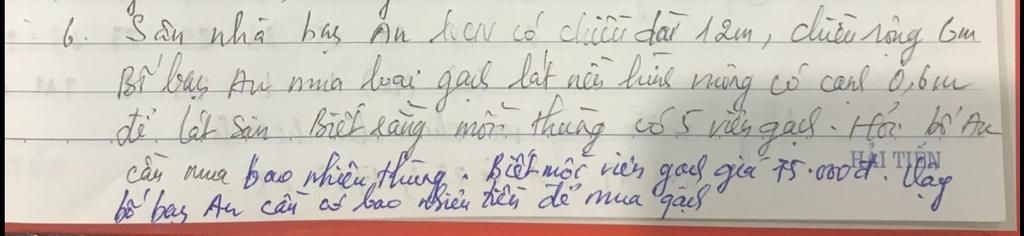 6. Sân nhà bạn An hcn có chiều dài 12m, chiều rộng 6m
Bố bạn An mua loại gạch lát nền hình vuông có cạnh 0,6m
để lát sân. Biết rằng mỗi thùng có 5 viên gạch. Hỏi bố An
cần mua bao nhiêu thùng. Biết một viên gạch giá 75.000đ. Vậy
HẢI TIẾN
bố bạn An cần có bao nhiêu tiền để mua gạch